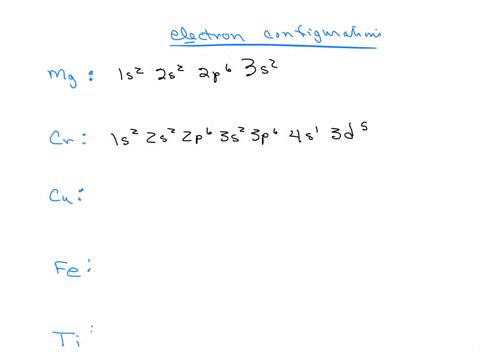 electron configurations
Mg: 1s² 2s² 2p⁶ 3s²
Cr: 1s² 2s² 2p⁶ 3s² 3p⁶ 4s¹ 3d⁵
Cu:
Fe:
Ti: